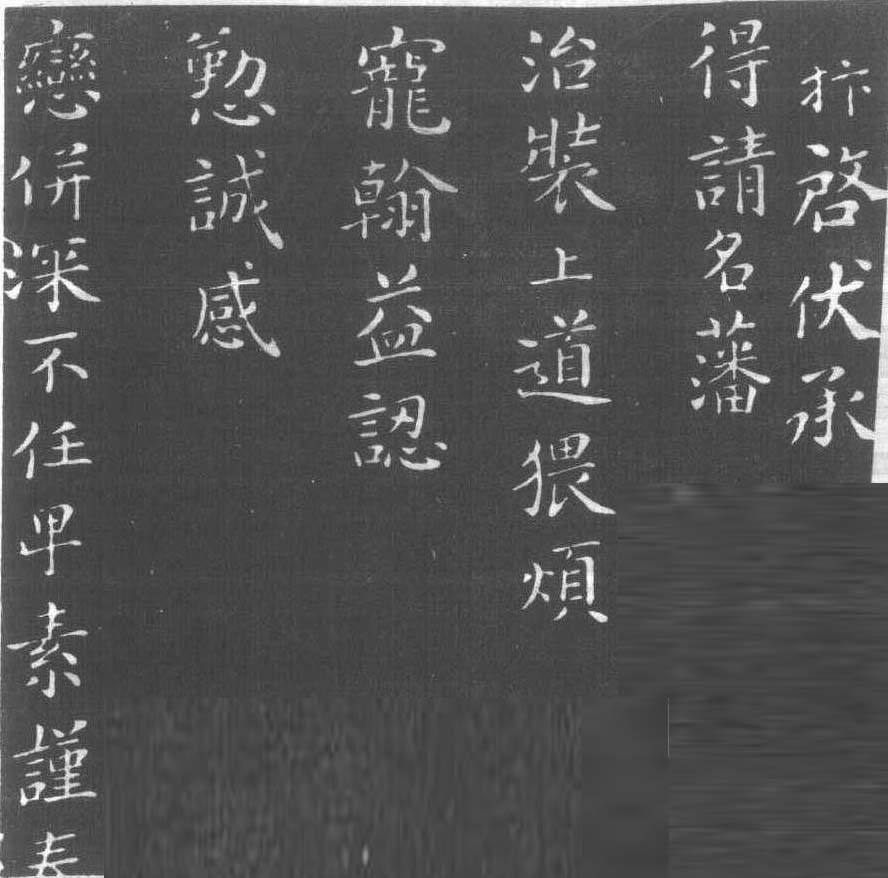 抃啓伏承
得請名藩
治裝上道猥煩
寵翰益認
懃誠感
戀併深不任卑素謹